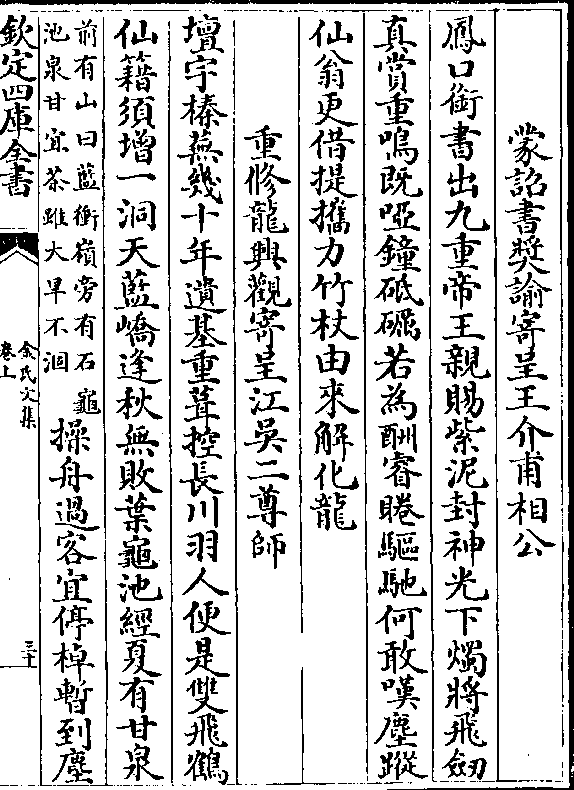 蒙詔書奬諭寄呈王介甫相公
鳳口銜書出九重帝王親賜紫泥封神光下燭將飛劒
真賞重鳴既啞鐘砥礪若為酬睿睠驅馳何敢嘆塵蹤
仙翁更借提攜力竹杖由來解化龍
重修龍興觀寄呈江吳二尊師
壇宇榛蕪幾十年遺基重葺控長川羽人便是雙飛鶴
仙籍須增一洞天藍嶠逢秋無敗葉龜池經夏有甘泉
前有山曰藍衝嶺旁有石龜
池泉甘宜茶雖大旱不涸
操舟過客宜停棹暫到塵
欽定四庫全書
余氏文集
卷上
三十